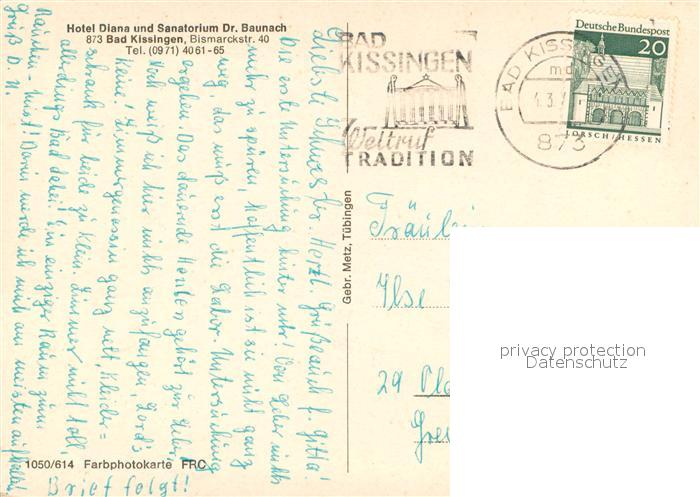 Hotel Diana und Sanatorium Dr. Baunach
873 Bad Kissingen, Bismarckstr. 40
Tel. (0971) 4061-65
BAD
KISSINGEN
Weltruf
TRADITION
BAD KISSINGEN
873
Deutsche Bundespost
20
LORSCH/HESSEN
Liebste Herzl. Grüße auch f. Gitta!
Die erste Untersuchung hinter mir! Von Leber nichts
mehr zu spüren, hoffentlich ist sie nicht ganz
weg, das muß erst die Labor-Untersuchung
ergeben. Das dauernde gehört zur Leber.
Noch weiß ich hier nichts anzufangen,
keine! Zimmergenossin ganz nett, Kleider=
schrank für beide zu klein. Zimmer nicht toll,
allerdings Bad dabei! Ein einziger Raum zum
Rauchen - Mist! Darin werde ich mich am meisten aufhalten!
Gruß D. U.
Brief folgt!
Gebr. Metz, Tübingen
Fräulein
Ilse
29
privacy protection
Datenschutz
1050/614 Farbphotokarte FRC